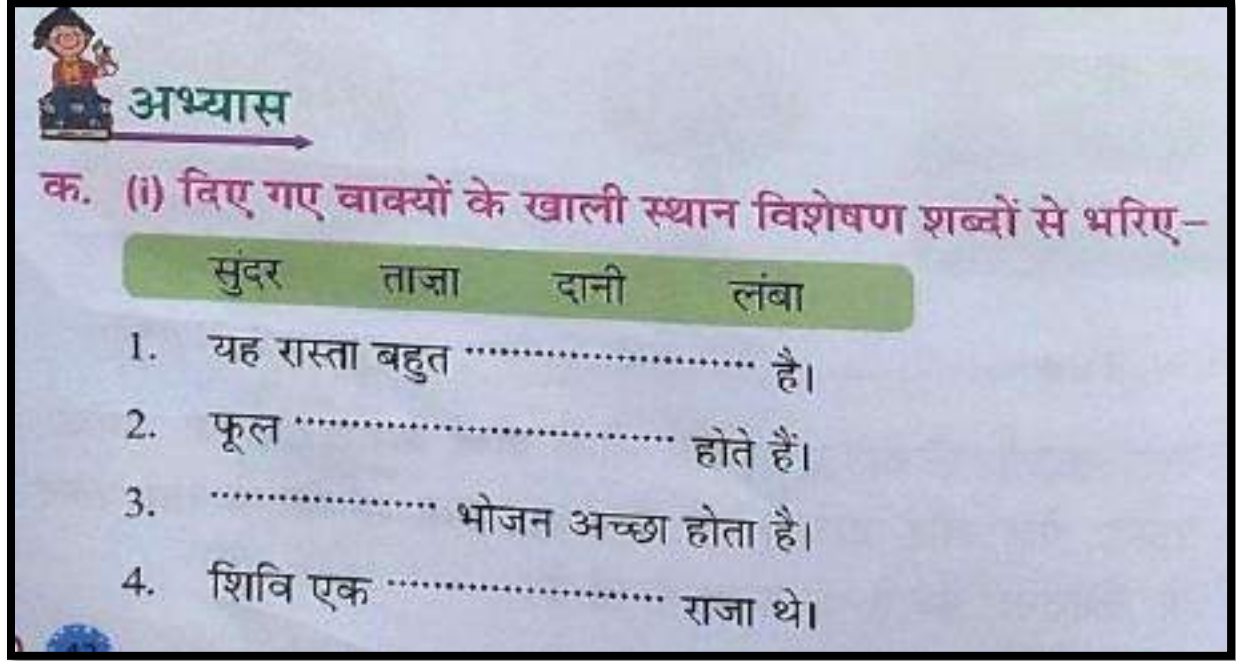 अभ्यास
क. (i) दिए गए वाक्यों के खाली स्थान विशेषण शब्दों से भरिए–
सुंदर ताज़ा दानी लंबा
1. यह रास्ता बहुत ........................ है।
2. फूल ................................ होते हैं।
3. ................... भोजन अच्छा होता है।
4. शिवि एक ....................... राजा थे।